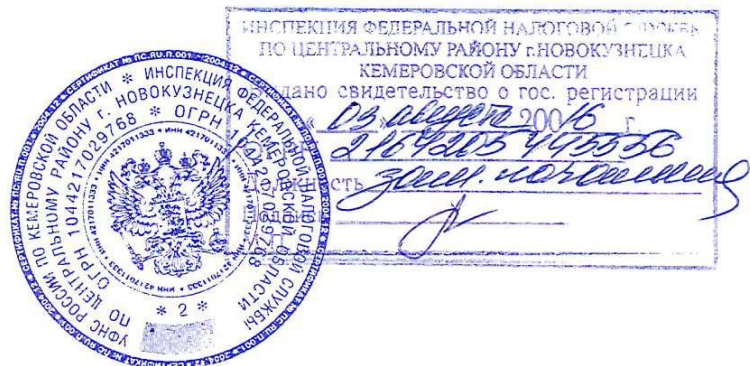 ИНСПЕКЦИЯ ФЕДЕРАЛЬНОЙ НАЛОГОВОЙ СЛУЖБЫ
ПО ЦЕНТРАЛЬНОМУ РАЙОНУ г.НОВОКУЗНЕЦКА
КЕМЕРОВСКОЙ ОБЛАСТИ
дано свидетельство о гос. регистрации
« 03 » августа 200 16 г.
2164205445556
олжность зам. начальника
УФНС РОССИИ ПО КЕМЕРОВСКОЙ ОБЛАСТИ * ИНСПЕКЦИЯ ФЕДЕРАЛЬНОЙ НАЛОГОВОЙ СЛУЖБЫ
ПО ЦЕНТРАЛЬНОМУ РАЙОНУ Г. НОВОКУЗНЕЦКА КЕМЕРОВСКОЙ ОБЛАСТИ
ОГРН 1044217029768 * ОГРН
* ИНН 4217011333 * ИНН 4217011333
* 2 *